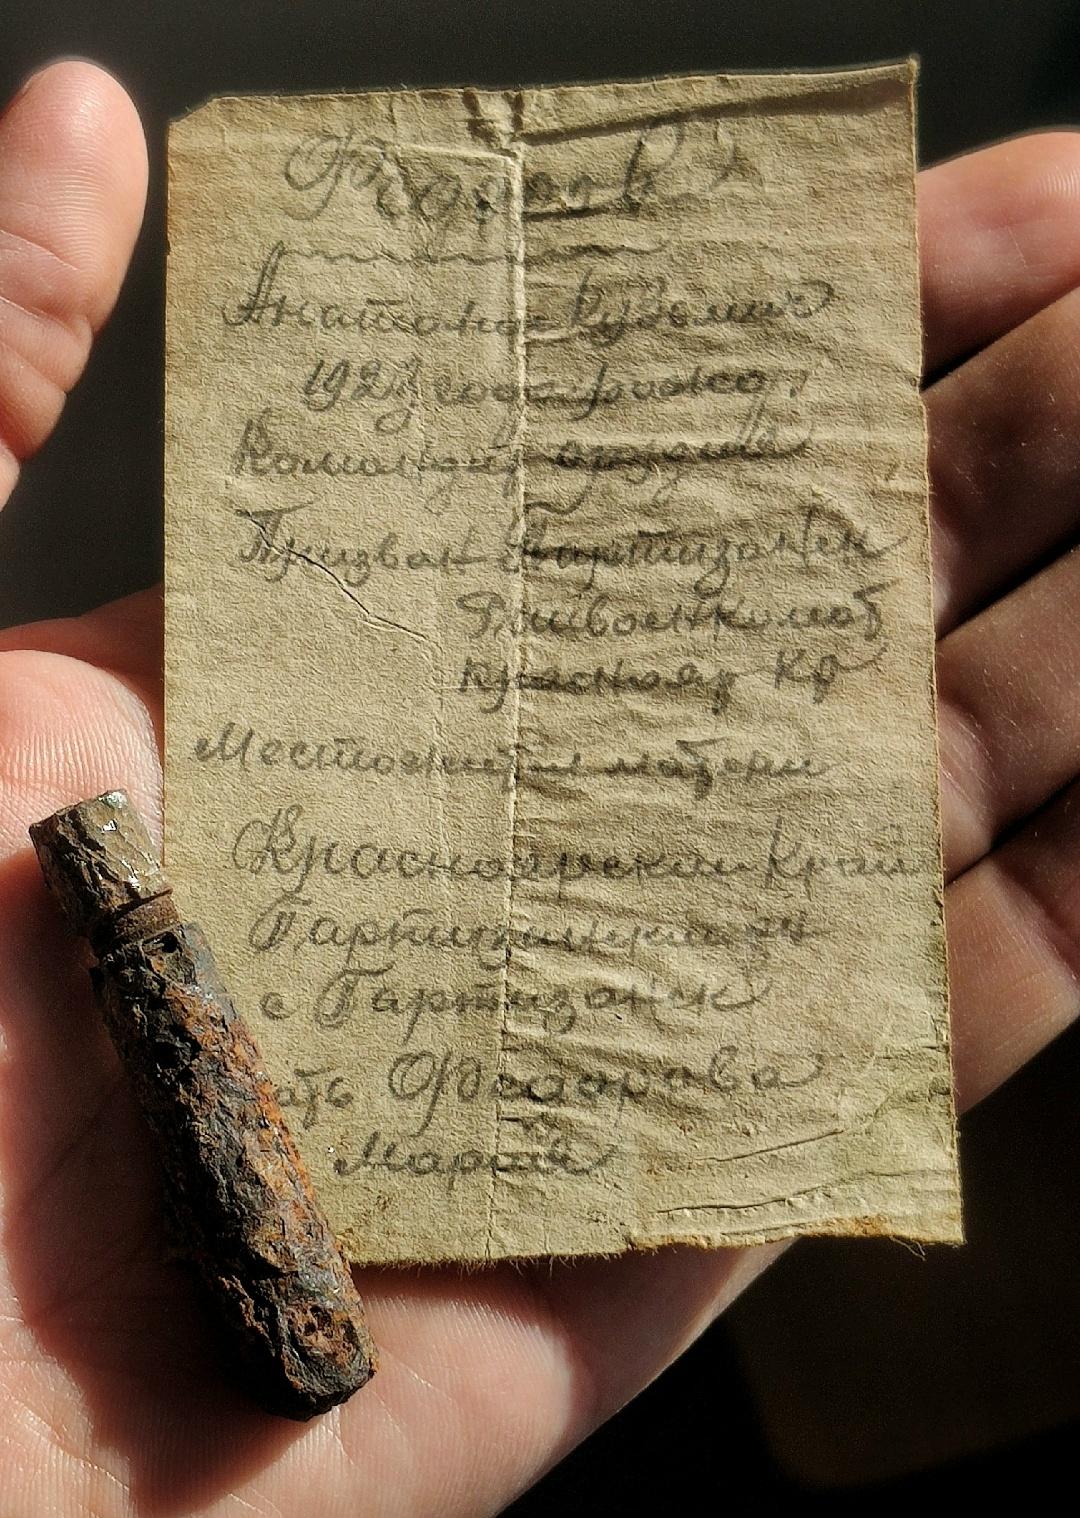 Федоров
Анатолий Кузьмич
1923 года рожд.
Командир орудия
Призван Партизанск
Райвоенкомат
Краснояр Кр
Местожит матери
Красноярский Край
Партизанский рн
с Партизанск
ать Федорова
Мария